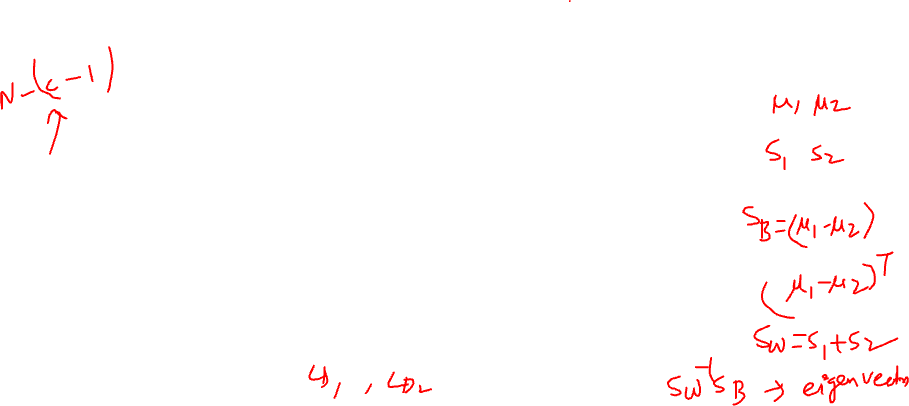 N-(c-1)
μ1 μ2
S1 S2
SB=(μ1-μ2)
(μ1-μ2)^T
SW=S1+S2
LD1, LD2
SW^-1SB → eigenvectors